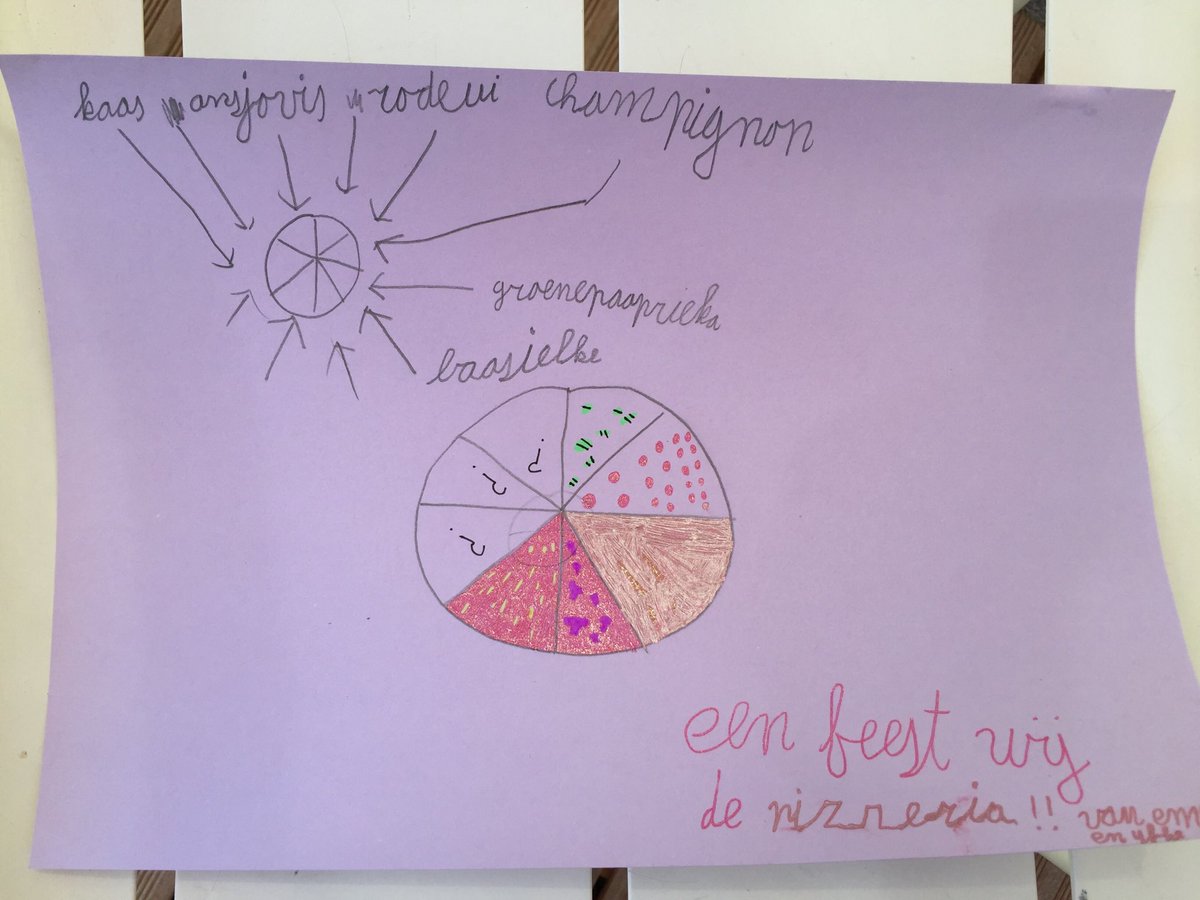 kaas ansjovis rode ui champignon
groenepaaprieka
baasielke
? ? ?
een feest wij
de pizzeria!! van em
en